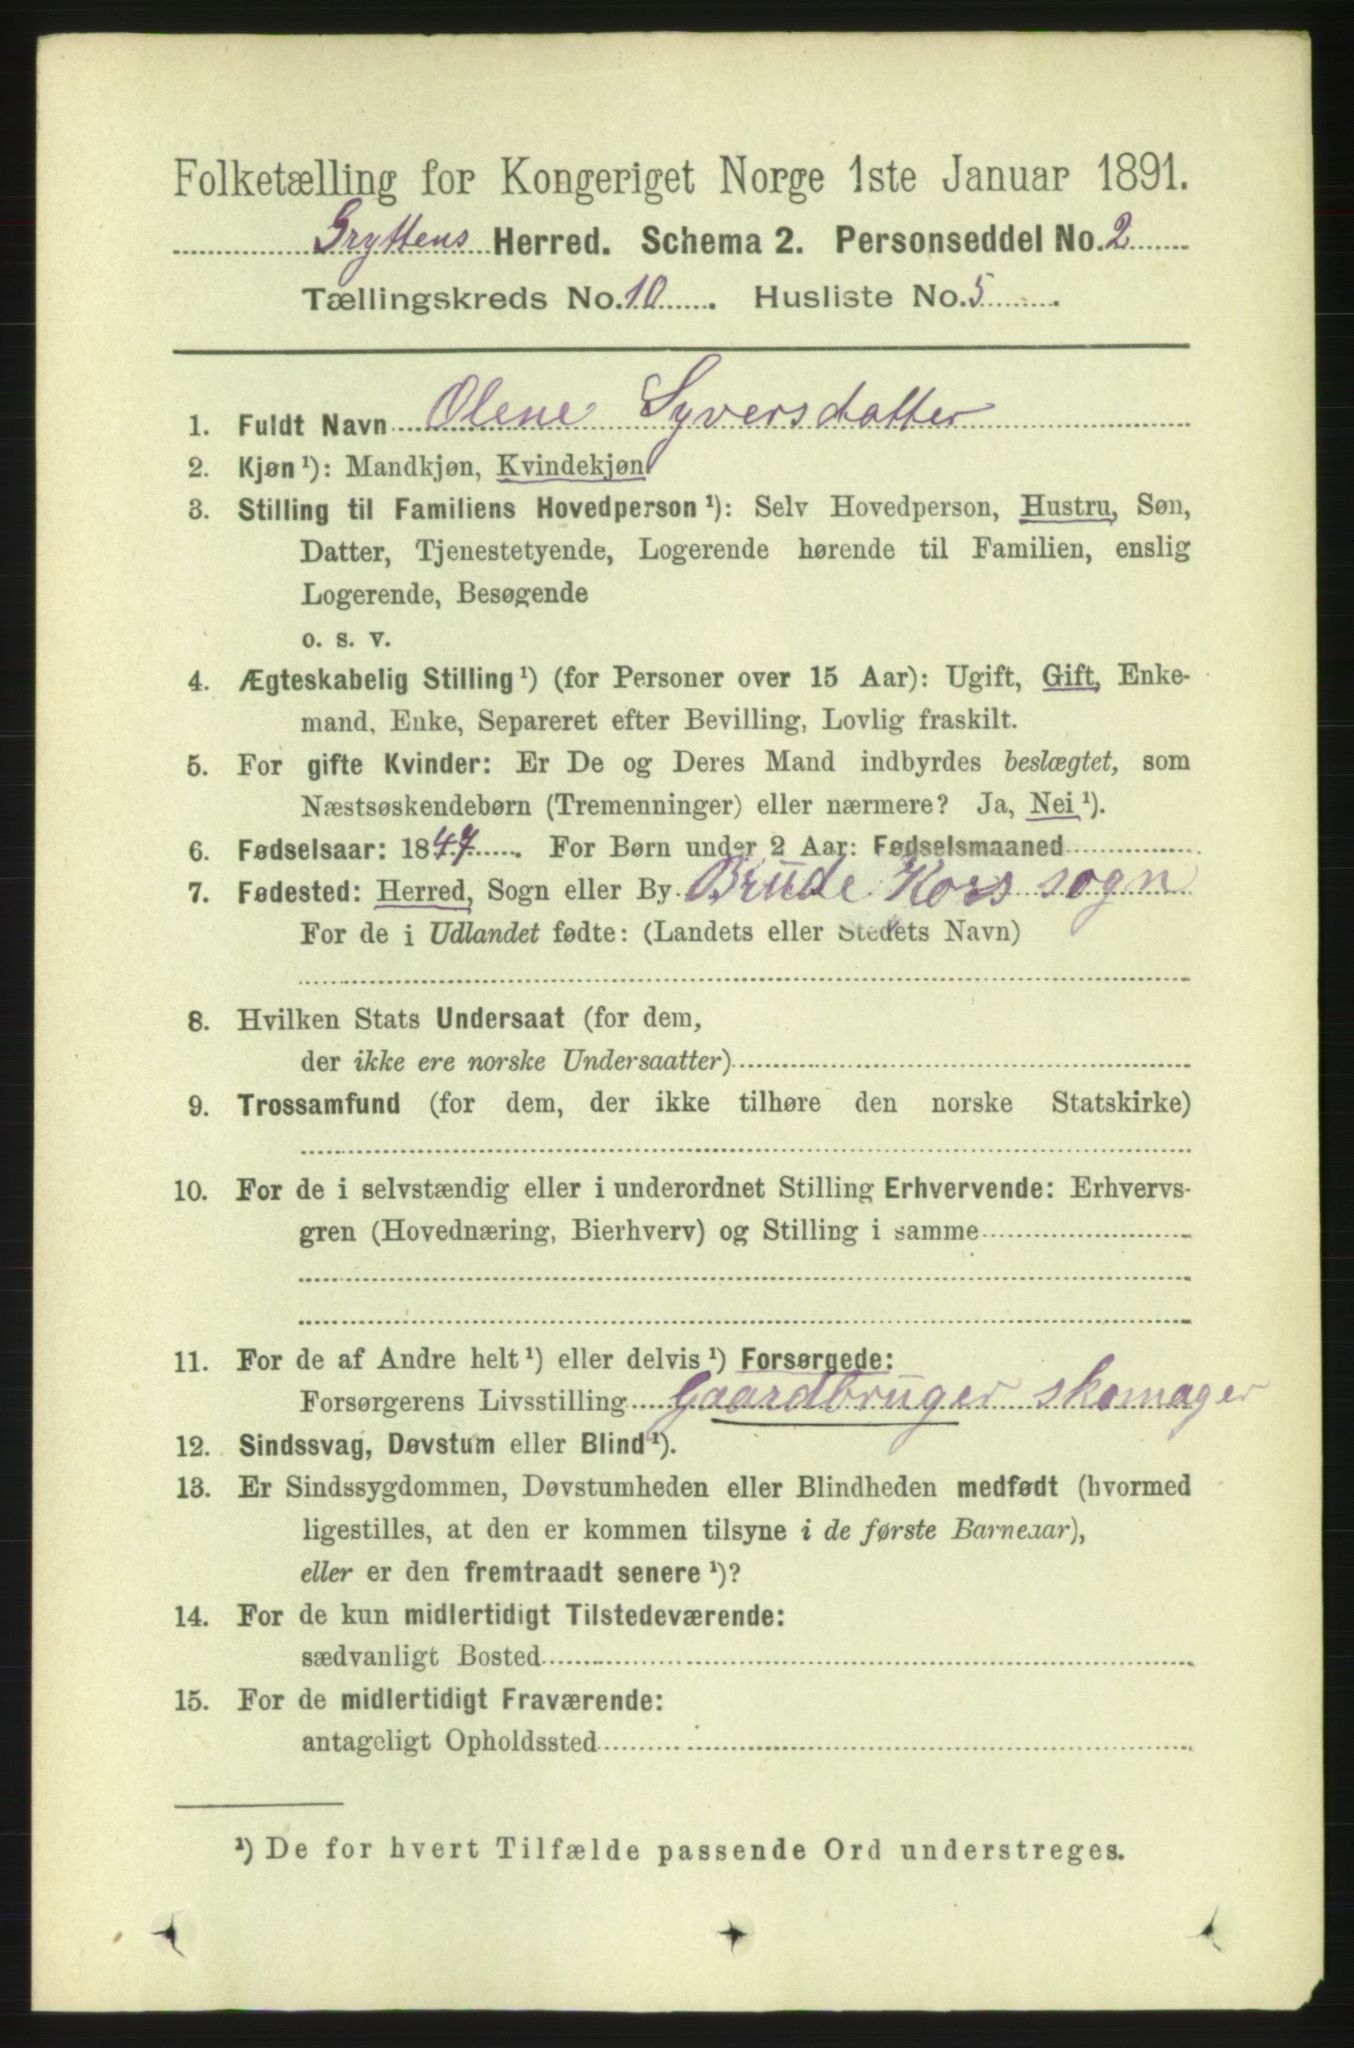 Folketælling for Kongeriget Norge 1ste Januar 1891.
Gryttens Herred. Schema 2. Personseddel No. 2
Tællingskreds No. 10. Husliste No. 5.
1. Fuldt Navn Olene Syversdatter
2. Kjøn ¹): Mandkjøn, Kvindekjøn
3. Stilling til Familiens Hovedperson ¹): Selv Hovedperson, Hustru, Søn,
Datter, Tjenestetyende, Logerende hørende til Familien, enslig
Logerende, Besøgende
o. s. v.
4. Ægteskabelig Stilling ¹) (for Personer over 15 Aar): Ugift, Gift, Enke-
mand, Enke, Separeret efter Bevilling, Lovlig fraskilt.
5. For gifte Kvinder: Er De og Deres Mand indbyrdes beslægtet, som
Næstsøskendebørn (Tremenninger) eller nærmere? Ja, Nei ¹).
6. Fødselsaar: 1847. For Børn under 2 Aar: Fødselsmaaned
7. Fødested: Herred, Sogn eller By Brude Kors sogn
For de i Udlandet fødte: (Landets eller Stedets Navn)
8. Hvilken Stats Undersaat (for dem,
der ikke ere norske Undersaatter)
9. Trossamfund (for dem, der ikke tilhøre den norske Statskirke)
10. For de i selvstændig eller i underordnet Stilling Erhvervende: Erhvervs-
gren (Hovednæring, Bierhverv) og Stilling i samme
11. For de af Andre helt ¹) eller delvis ¹) Forsørgede:
Forsørgerens Livsstilling Gaardbruger skomager
12. Sindssvag, Døvstum eller Blind ¹).
13. Er Sindssygdommen, Døvstumheden eller Blindheden medfødt (hvormed
ligestilles, at den er kommen tilsyne i de første Barneaar),
eller er den fremtraadt senere ¹)?
14. For de kun midlertidigt Tilstedeværende:
sædvanligt Bosted
15. For de midlertidigt Fraværende:
antageligt Opholdssted
¹) De for hvert Tilfælde passende Ord understreges.